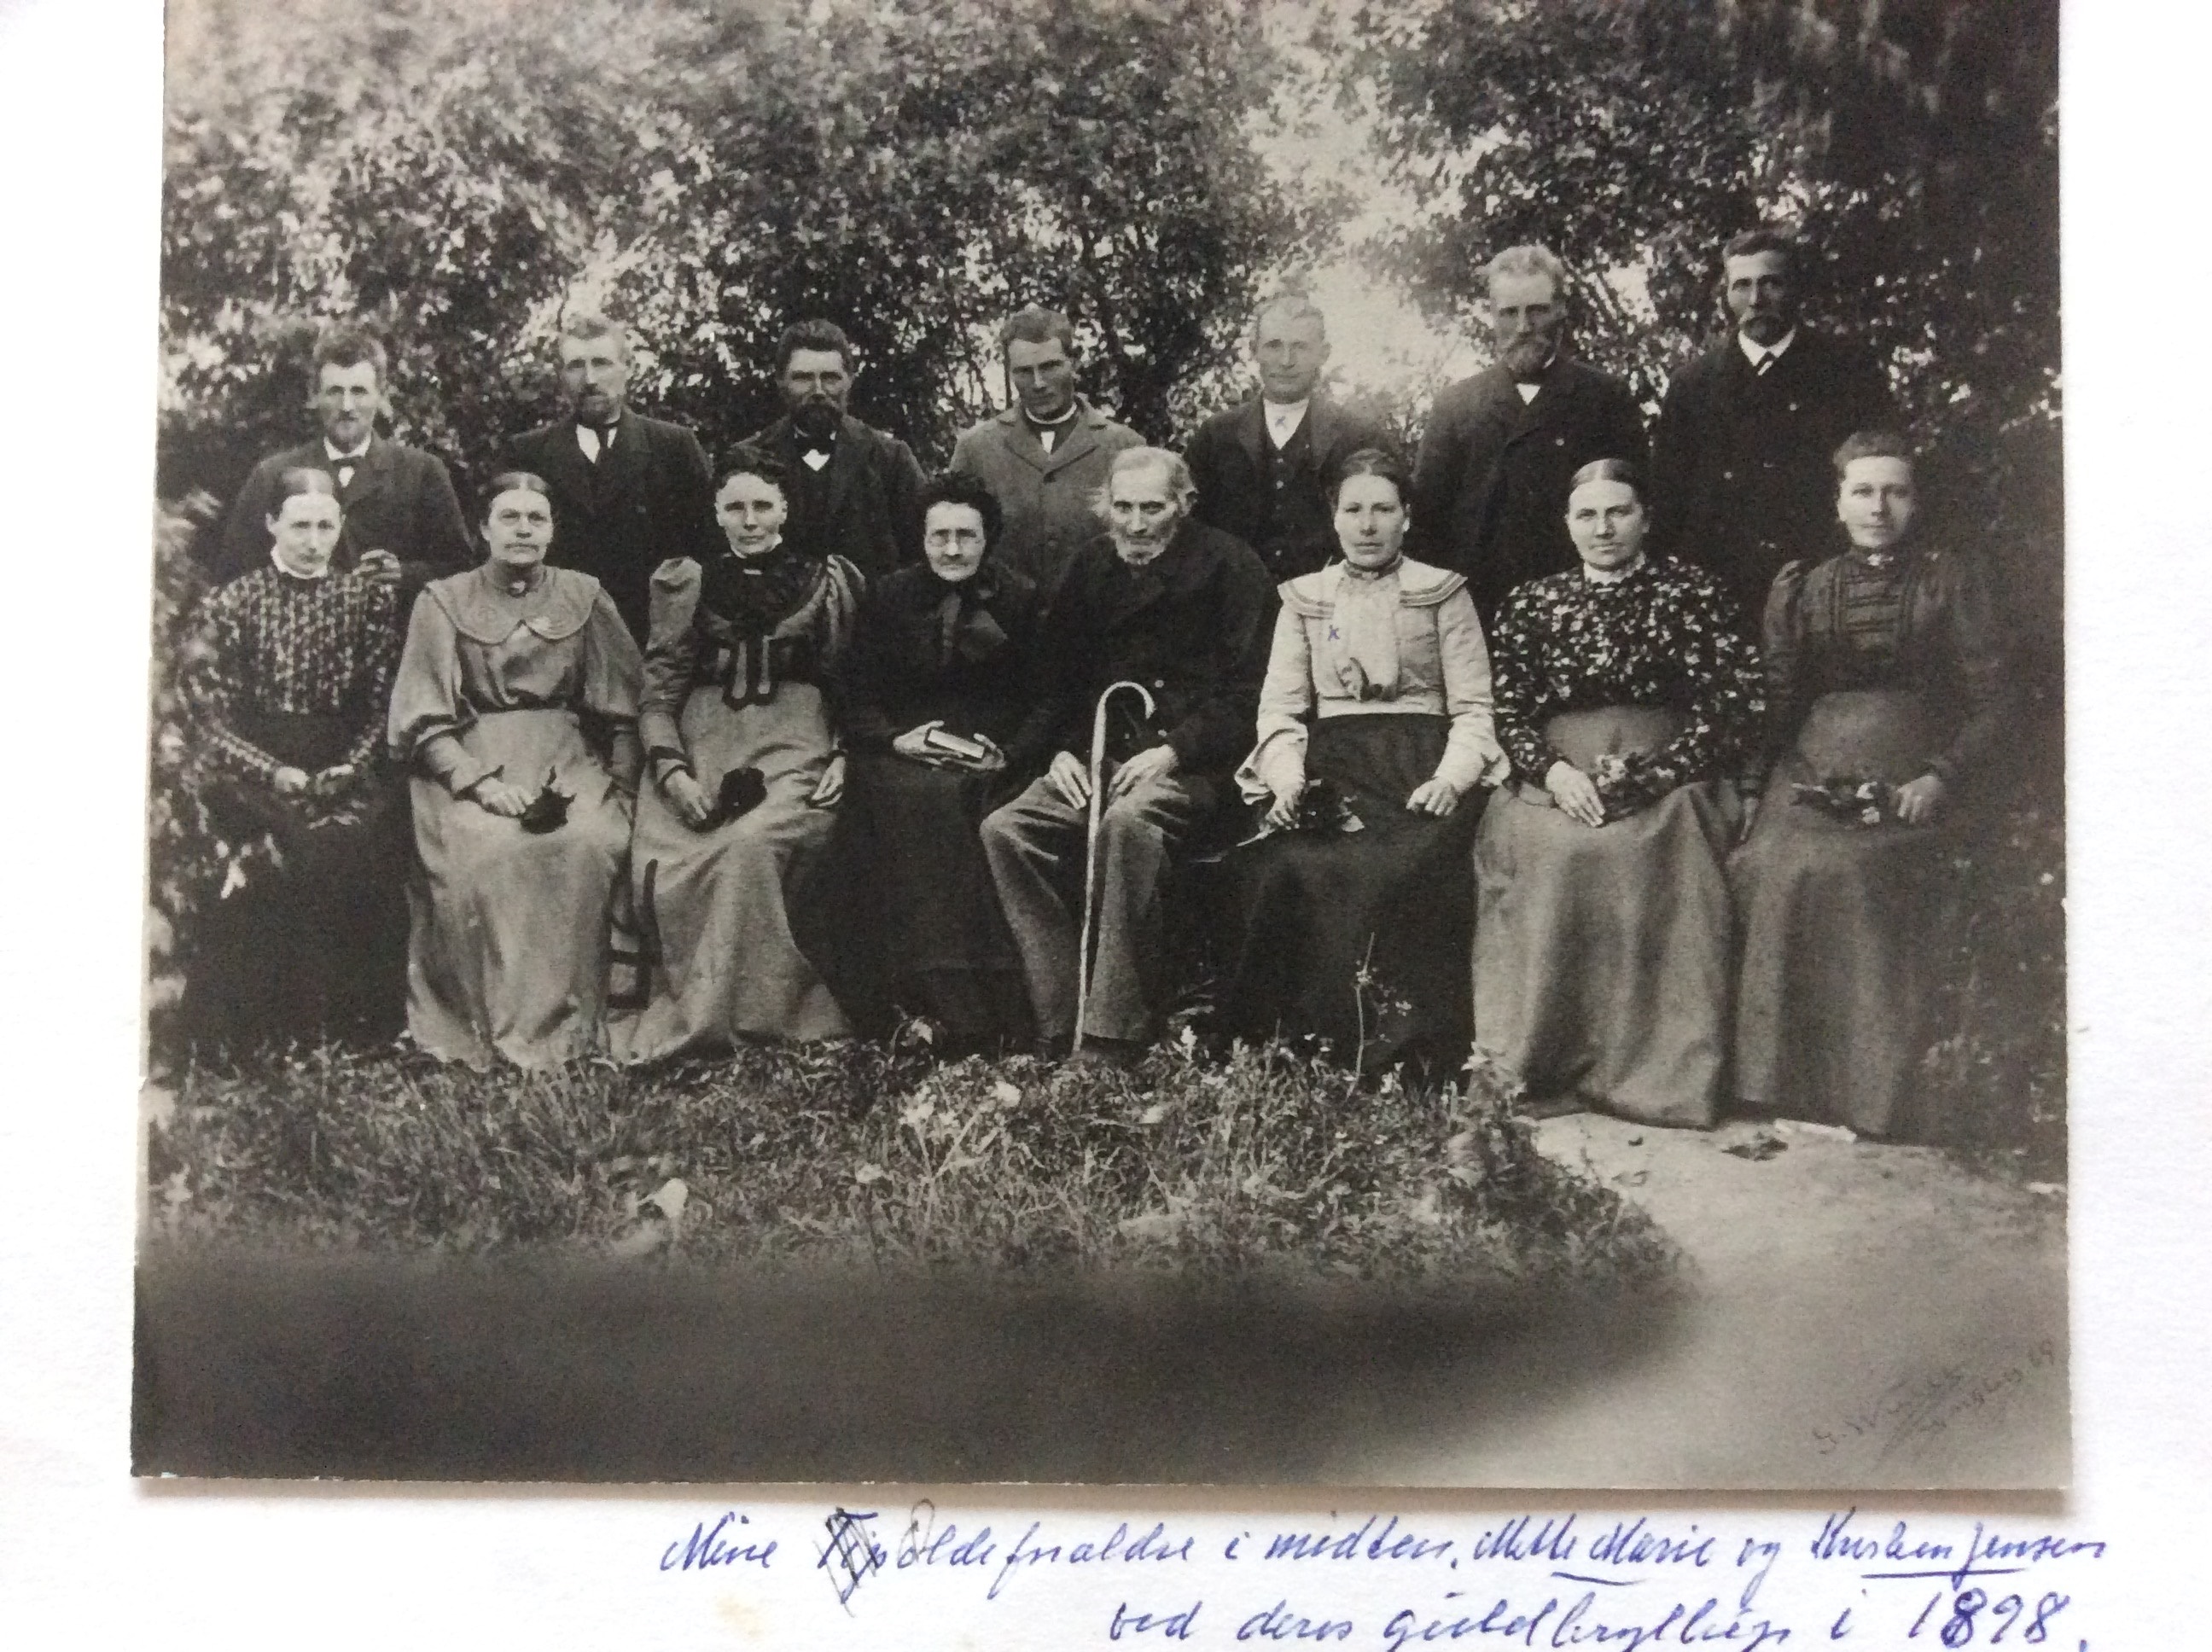 Mine Oldeforældre i midten, Mette Marie og Kristen Jensen
ved deres guldbryllup i 1898.